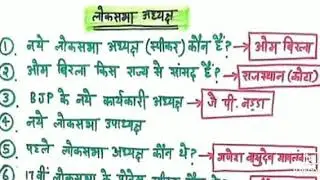 लोकसभा अध्यक्ष
① नये लोकसभा अध्यक्ष (स्पीकर) कौन हैं? → ओम बिरला
② ओम बिरला किस राज्य से सांसद हैं? → राजस्थान (कोटा)
③ BJP के नये कार्यकारी अध्यक्ष → जे. पी. नड्डा
④ नये लोकसभा उपाध्यक्ष
⑤ पहले लोकसभा अध्यक्ष कौन थे? → गणेश वासुदेव
⑥ 17वीं लोकसभा के